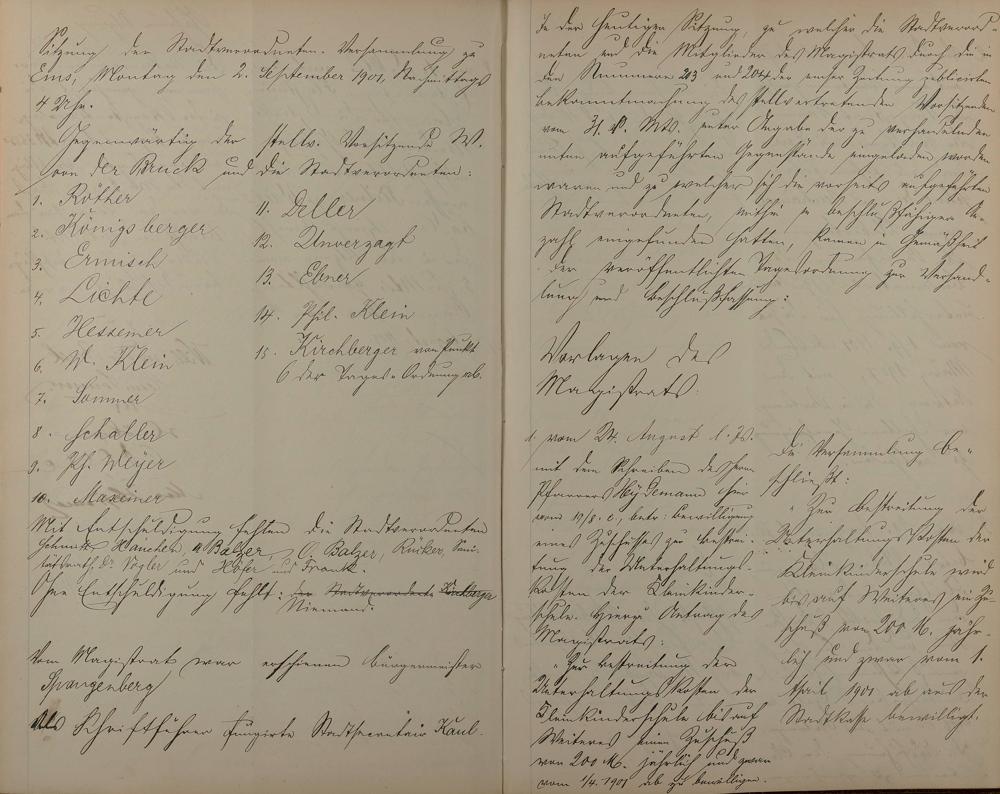 Sitzung der Stadtverordneten-Versammlung zu
Ems, Montag den 2. September 1901, Nachmittags
4 Uhr.
Gegenwärtig der stellv. Vorsitzende W.
von der Bruck und die Stadtverordneten:
1. Röther
2. Königsberger
3. Ermisch
4. Lichte
5. Hessemer
6. W. Klein
7. Sommer
8. Schaller
9. Ph. Weyer
10. Maxeiner
11. Deller
12. Unverzagt
13. Ebner
14. Phil. Klein
15. Kirchberger von Punkt
6 der Tages-Ordnung ab.
Mit Entschuldigung fehlten die Stadtverordneten
Schmitt, Balzer, C. Balzer, Rücker, Sani-
tätsrath Dr. Vogler und Höfer und Frank.
Ohne Entschuldigung fehlt: der Stadtverordnete Kirchberger
Niemand.
Vom Magistrat war erschienen Bürgermeister
Spangenberg
Als Schriftführer fungirte Stadtsecretair Kaul.
In der heutigen Sitzung, zu welcher die Stadtverord-
neten und die Mitglieder des Magistrats durch die in
den Nummern 203 und 204 der Emser Zeitung publicirten
Bekanntmachung des stellvertretenden Vorsitzenden
vom 31. v. Mts. unter Angabe der zu verhandelnden
unten aufgeführten Gegenstände eingeladen worden
waren und zu welcher sich die vorseits aufgeführten
Stadtverordneten, mithin in beschlußfähiger An-
zahl eingefunden hatten, kamen in Gemäßheit
der veröffentlichten Tagesordnung zur Verhand-
lung und Beschlußfassung:
Vorlagen des
Magistrats.
1, vom 24. August l. Js.
mit dem Schreiben des Herrn
Pfarrers Heydemann hier
vom 19/8. c., betr. Bewilligung
eines Zuschusses zu Bestrei-
tung der Unterhaltungs-
kosten der Kleinkinder-
schule. Hierzu Antrag des
Magistrats:
"Zur Bestreitung der
Unterhaltungskosten der
Kleinkinderschule bis auf
Weiteres einen Zuschuß
von 200 M. jährlich und zwar
vom 1/4. 1901 ab zu bewilligen.
Die Versammlung be-
schließt:
"Zur Bestreitung der
Unterhaltungskosten der
Kleinkinderschule wird
bis auf Weiteres ein Zu-
schuß von 200 M. jähr-
lich und zwar vom 1.
April 1901 ab aus der
Stadtkasse bewilligt.